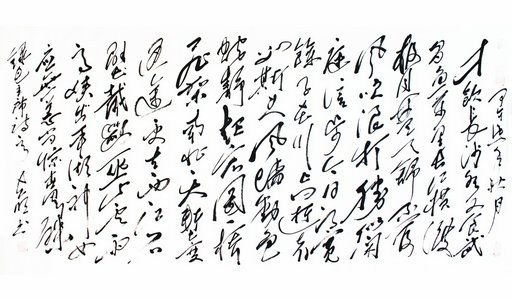 才饮长沙水又食武
昌鱼万里长江横渡
极目楚天舒不管
风吹浪打胜似闲
庭信步今日得宽
馀子在川上曰逝者
如斯夫风樯动龟
蛇静起宏图一桥
飞架南北天堑变
通途更立西江石
壁截断巫山云雨
高峡出平湖神女
应无恙当惊世界殊
录毛主席诗词